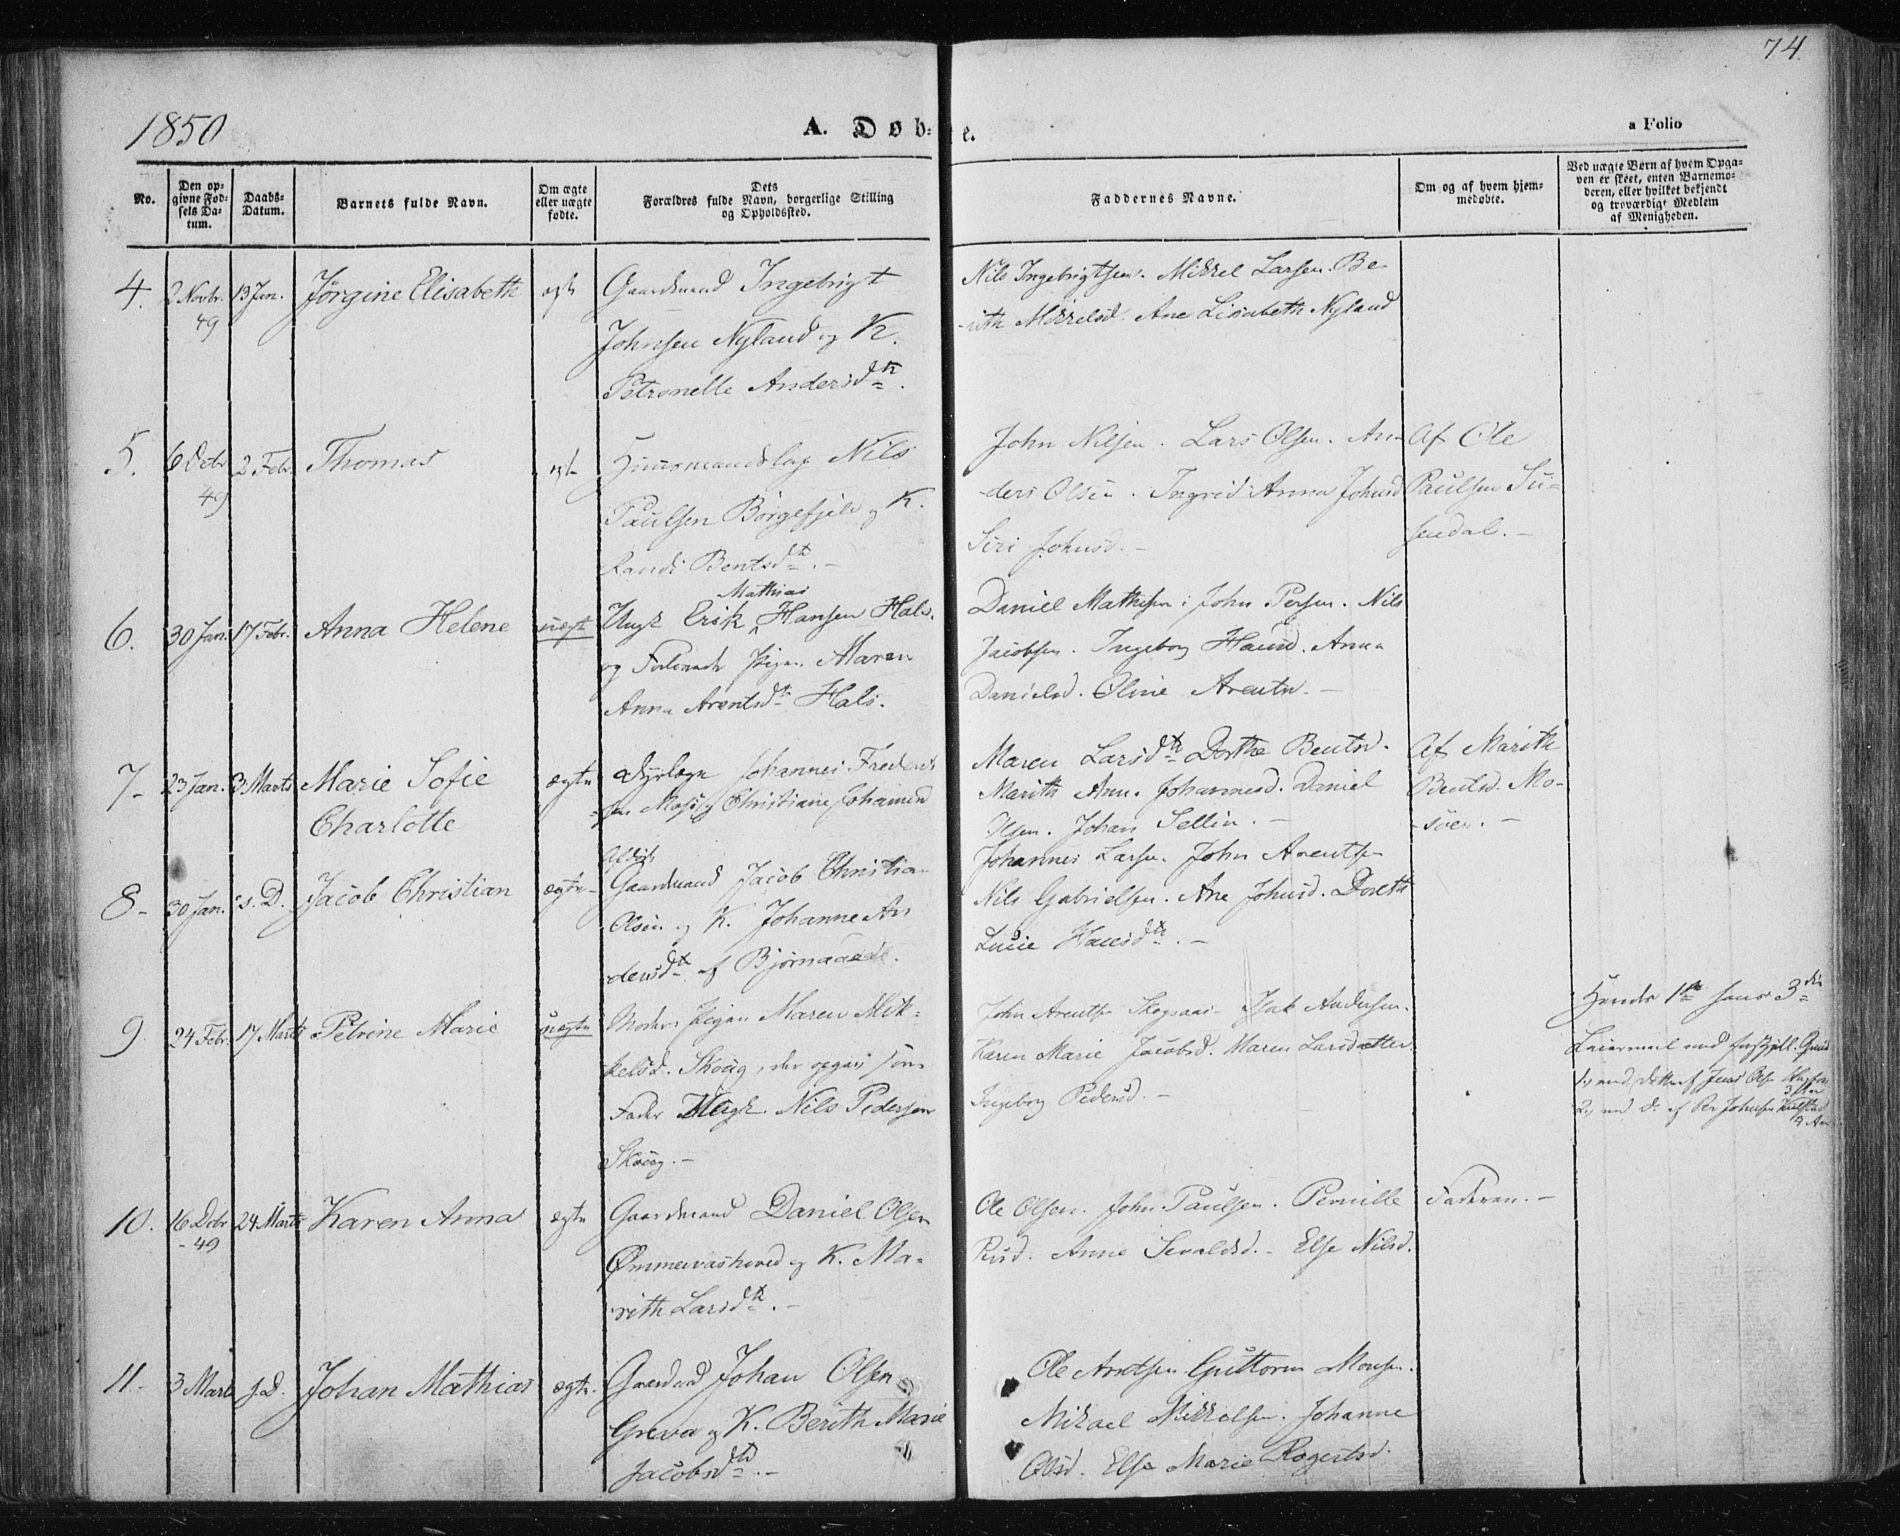 74.
1850
A. Døb-
te.
a Folio
No.
Den op-
givne Fød-
sels Da-
tum.
Daabs-
Datum.
Barnets fulde Navn.
Om ægte
eller uægte
fødte.
Dets
Forældres fulde Navn, borgerlige Stilling
og Opholdssted.
Faddernes Navne.
Om og af hvem hjem-
medøbte.
Ved uægte Børn af hvem Opga-
ven er skeet, enten Barnemo-
deren, eller hvilket bekjendt
og troværdigt Medlem
af Menigheden.
4.
2 Novbr.
49
13 Jan.
Jørgine Elisabeth
ægte
Gaardmand Ingebrigt
Johnsen Nyland og K.
Petronelle Andersd.
Nils Ingebrigtsen. Mikkel Larsen. Be-
rith Mikkelsd. Ane Lisabeth Nyland
5.
6 Octr.
49
2 Febr.
Thomas
ægte
Nils
Paulsen Børgefjeld og K.
Randi Bentsd.
John Nilsen. Lars Olsen. An-
ders Olsen. Ingrid Anna Johnsd
Siri Johnsd. -
Af Ole
Paulsen Su-
sendal. -
6.
30 Jan.
17 Febr.
Anna Helene
uægte
Mathias
Ungk. Erik Hansen Hals.
og Pigen Maren
Anna Arentsd. Hals.
Daniel Mathisen. John Persen. Nils
Jacobsen. Ingeborg Hansd. Anna
Danielsd. Oline Arentsd. -
7-
23 Jan.
3 Marts
Marie Sofie
Charlotte
ægte
Johannes Frederik-
sen Mosø og Christiane Johannesd
Maren Larsd. Dorthe Bentsd.
Marith Ann. Johannesd. Daniel
Olsen. Johan Sellin. -
Af Marith
Bentsd. Mo-
søen. -
8-
30 Jan.
s. D.
Jacob Christian
ægte
Afdøde
Gaardmand Jacob Christian
Olsen og K. Johanne An-
dersd. af Bjørnaadal.
Johannes Larsen. John Arentsen
Nils Gabrielsen. Ane Johnsd. Doreth
Lucie Hansd. -
9.
24 Febr.
17 Marts
Petrine Marie
uægte
Moder: Pigen Maren Mik-
kelsd. Skoug, der opgav som
Fader Ungk. Nils Pedersen
Skoug. -
John Arentsen Skogsaas Isak Andersen.
Karen Marie Jacobsd. Maren Larsdatter
Ingeborg Pedersd. -
Hendes 1ste hans 3die
Leiermaal
10.
16 Decbr
- 49
24 Marts
Karen Anna
ægte
Gaardmand Daniel Olsen
Ømmervashoved og K. Ma-
rith Larsd. -
Ole Olsen. John Paulsen. Pernille
Anne Sevaldsd. - Else Nilsd.
Faderen. -
11.
3 Mart
s. D.
Johan Mathias
ægte.
Gaardmd Johan Olsen
Greva og K. Berith Marie
Jacobsd. -
Ole Arntsen Guttorm Monsen.
Mikael Mikkelsen. Johanne
Olsd. Else Marie Rogertsd.